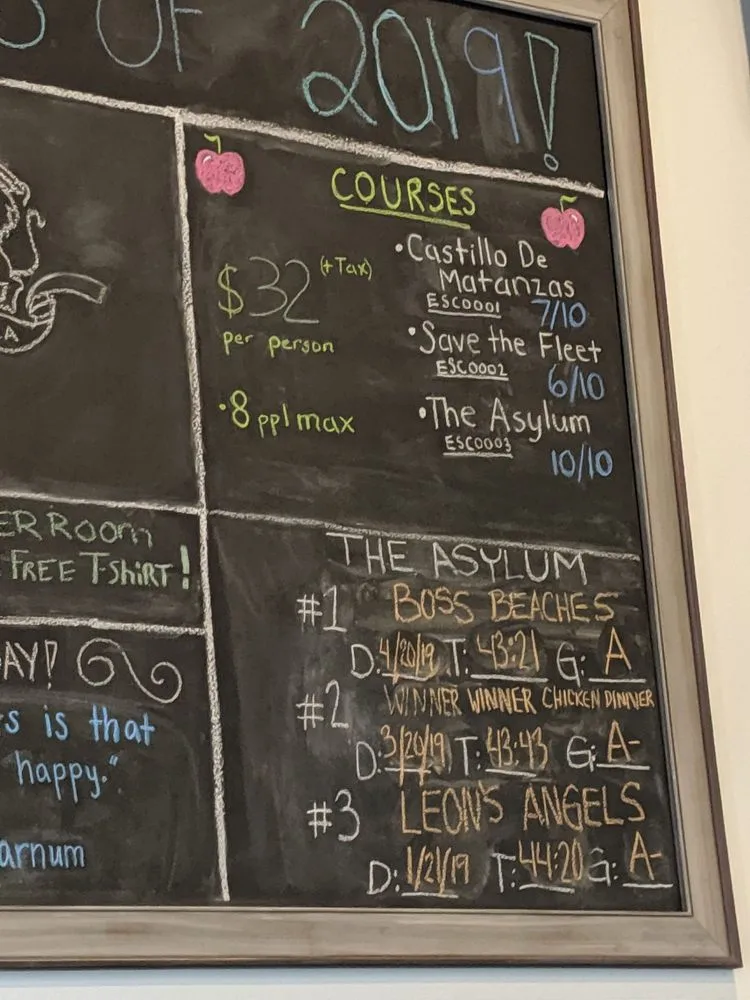 OF 2019!
COURSES
$32 (+Tax)
per person
•8 ppl max
•Castillo De
Matanzas
ESC0001 7/10
•Save the Fleet
ESC0002 6/10
•The Asylum
ESC0003
10/10
ER ROOM
FREE T-SHIRT!
AY!
s is that
happy."
arnum
THE ASYLUM
#1 BOSS BEACHES
D: 4/20/19 T: 43:21 G: A
#2 WINNER WINNER CHICKEN DINNER
D: 3/20/19 T: 43:43 G: A-
#3 LEON'S ANGELS
D: 1/21/19 T: 44:20 G: A-